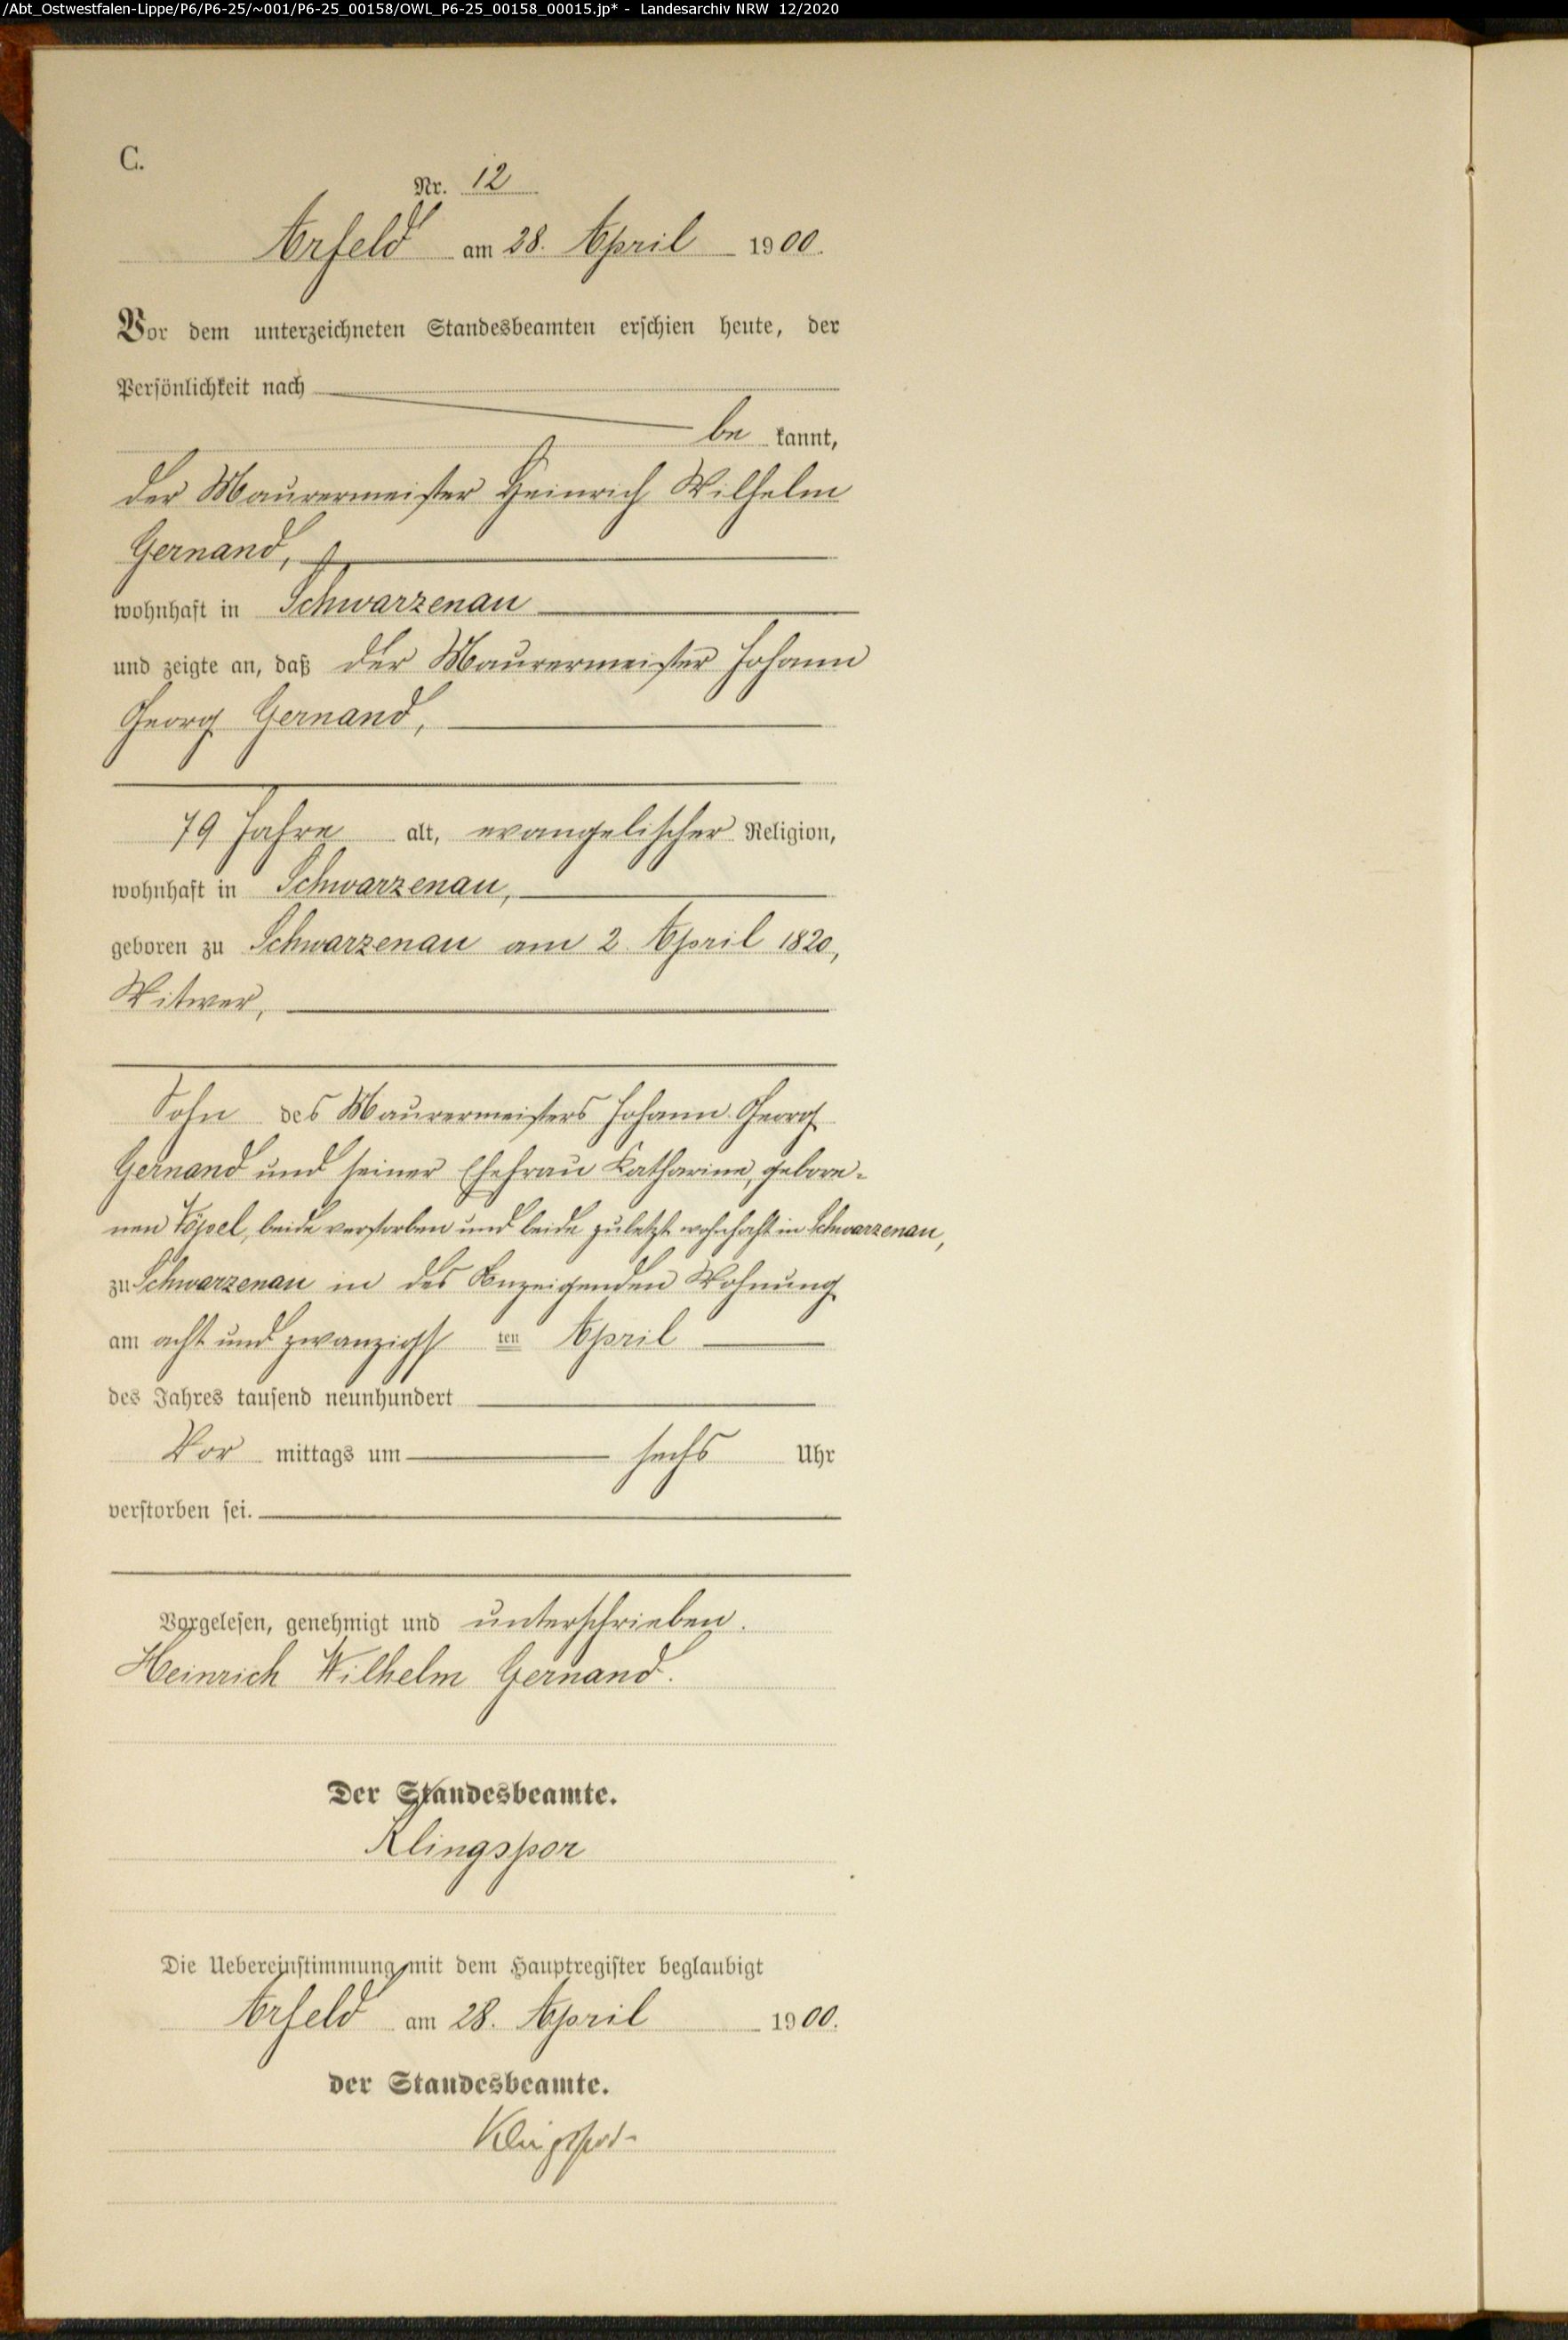 /Abt_Ostwestfalen-Lippe/P6/P6-25/~001/P6-25_00158/OWL_P6-25_00158_00015.jp* - Landesarchiv NRW 12/2020
C.
Nr. 12
Arfeld am 28. April 1900.
Vor dem unterzeichneten Standesbeamten erschien heute, der
Persönlichkeit nach
be kannt,
der Maurermeister Heinrich Wilhelm
Gernand,
wohnhaft in Schwarzenau
und zeigte an, daß der Maurermeister Johann
Georg Gernand,
79 Jahre alt, evangelischer Religion,
wohnhaft in Schwarzenau,
geboren zu Schwarzenau am 2. April 1820,
Witwer,
Sohn des Maurermeisters Johann Georg
Gernand und seiner Ehefrau Katharine, gebore-
nen Töpel, beide verstorben und beide zuletzt wohnhaft in Schwarzenau,
zu Schwarzenau in des Anzeigenden Wohnung
am acht und zwanzigst ten April
des Jahres tausend neunhundert
Vor mittags um sechs Uhr
verstorben sei.
Vorgelesen, genehmigt und unterschrieben.
Heinrich Wilhelm Gernand.
Der Standesbeamte.
Klingspor
Die Uebereinstimmung mit dem Hauptregister beglaubigt
Arfeld am 28. April 1900.
der Standesbeamte.
Klingspor